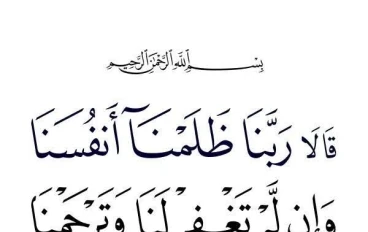 بِسْمِ ٱللَّهِ ٱلرَّحْمَٰنِ ٱلرَّحِيمِ
قَالَا رَبَّنَا ظَلَمْنَآ أَنفُسَنَا
وَإِن لَّمْ تَغْفِرْ لَنَا وَتَرْحَمْنَا